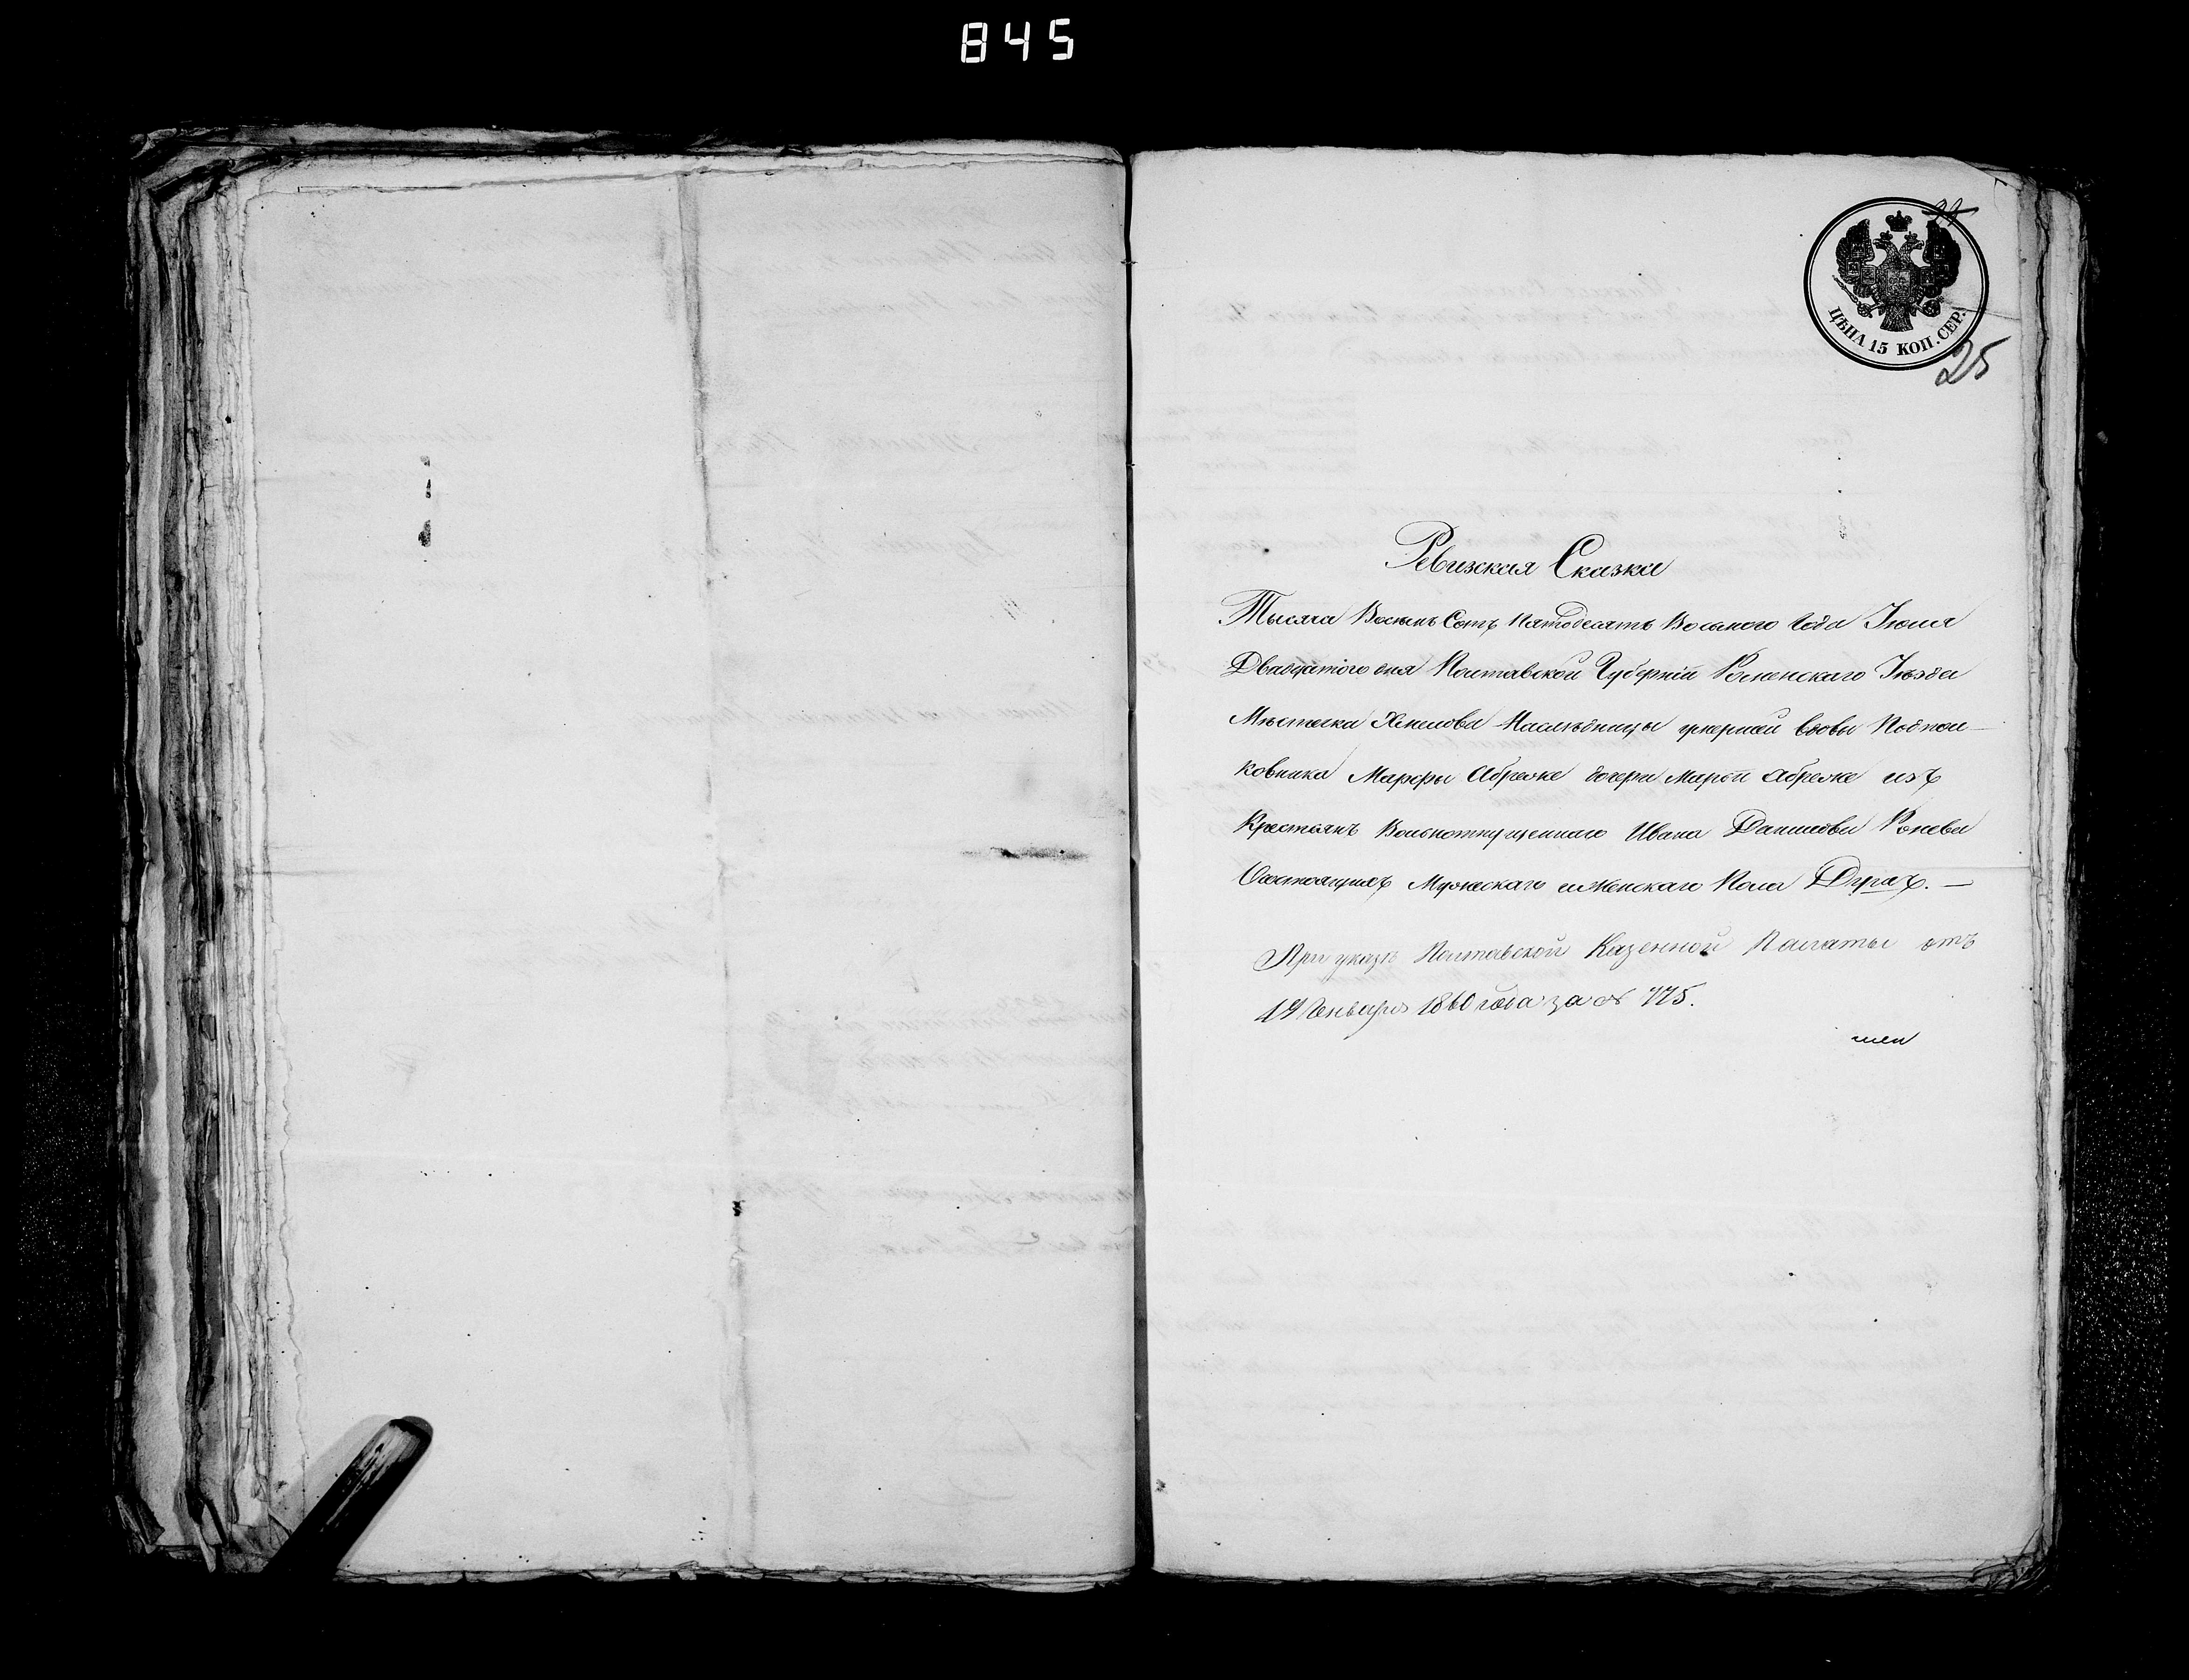 845
24
ЦѢНА 15 КОП. СЕР.
25
Ревизская Сказка
Тысяча Восемь Сотъ Пятдесятъ Восьмого Года Іюня
Двадцатого дня Полтавской Губерніи Роменскаго Уѣзда
Мѣстечка Хмелова Наслѣдницы умершей вдовы Подпол-
ковника Марфы дочери Маріи изъ
Крестьянъ Вольноотпущеннаго Ивана Данилова
Состоящихъ Мужескаго и Женскаго Пола Душахъ. —
При указѣ Полтавской Казенной Палаты отъ
19 Генваря 1860 года за № 775.